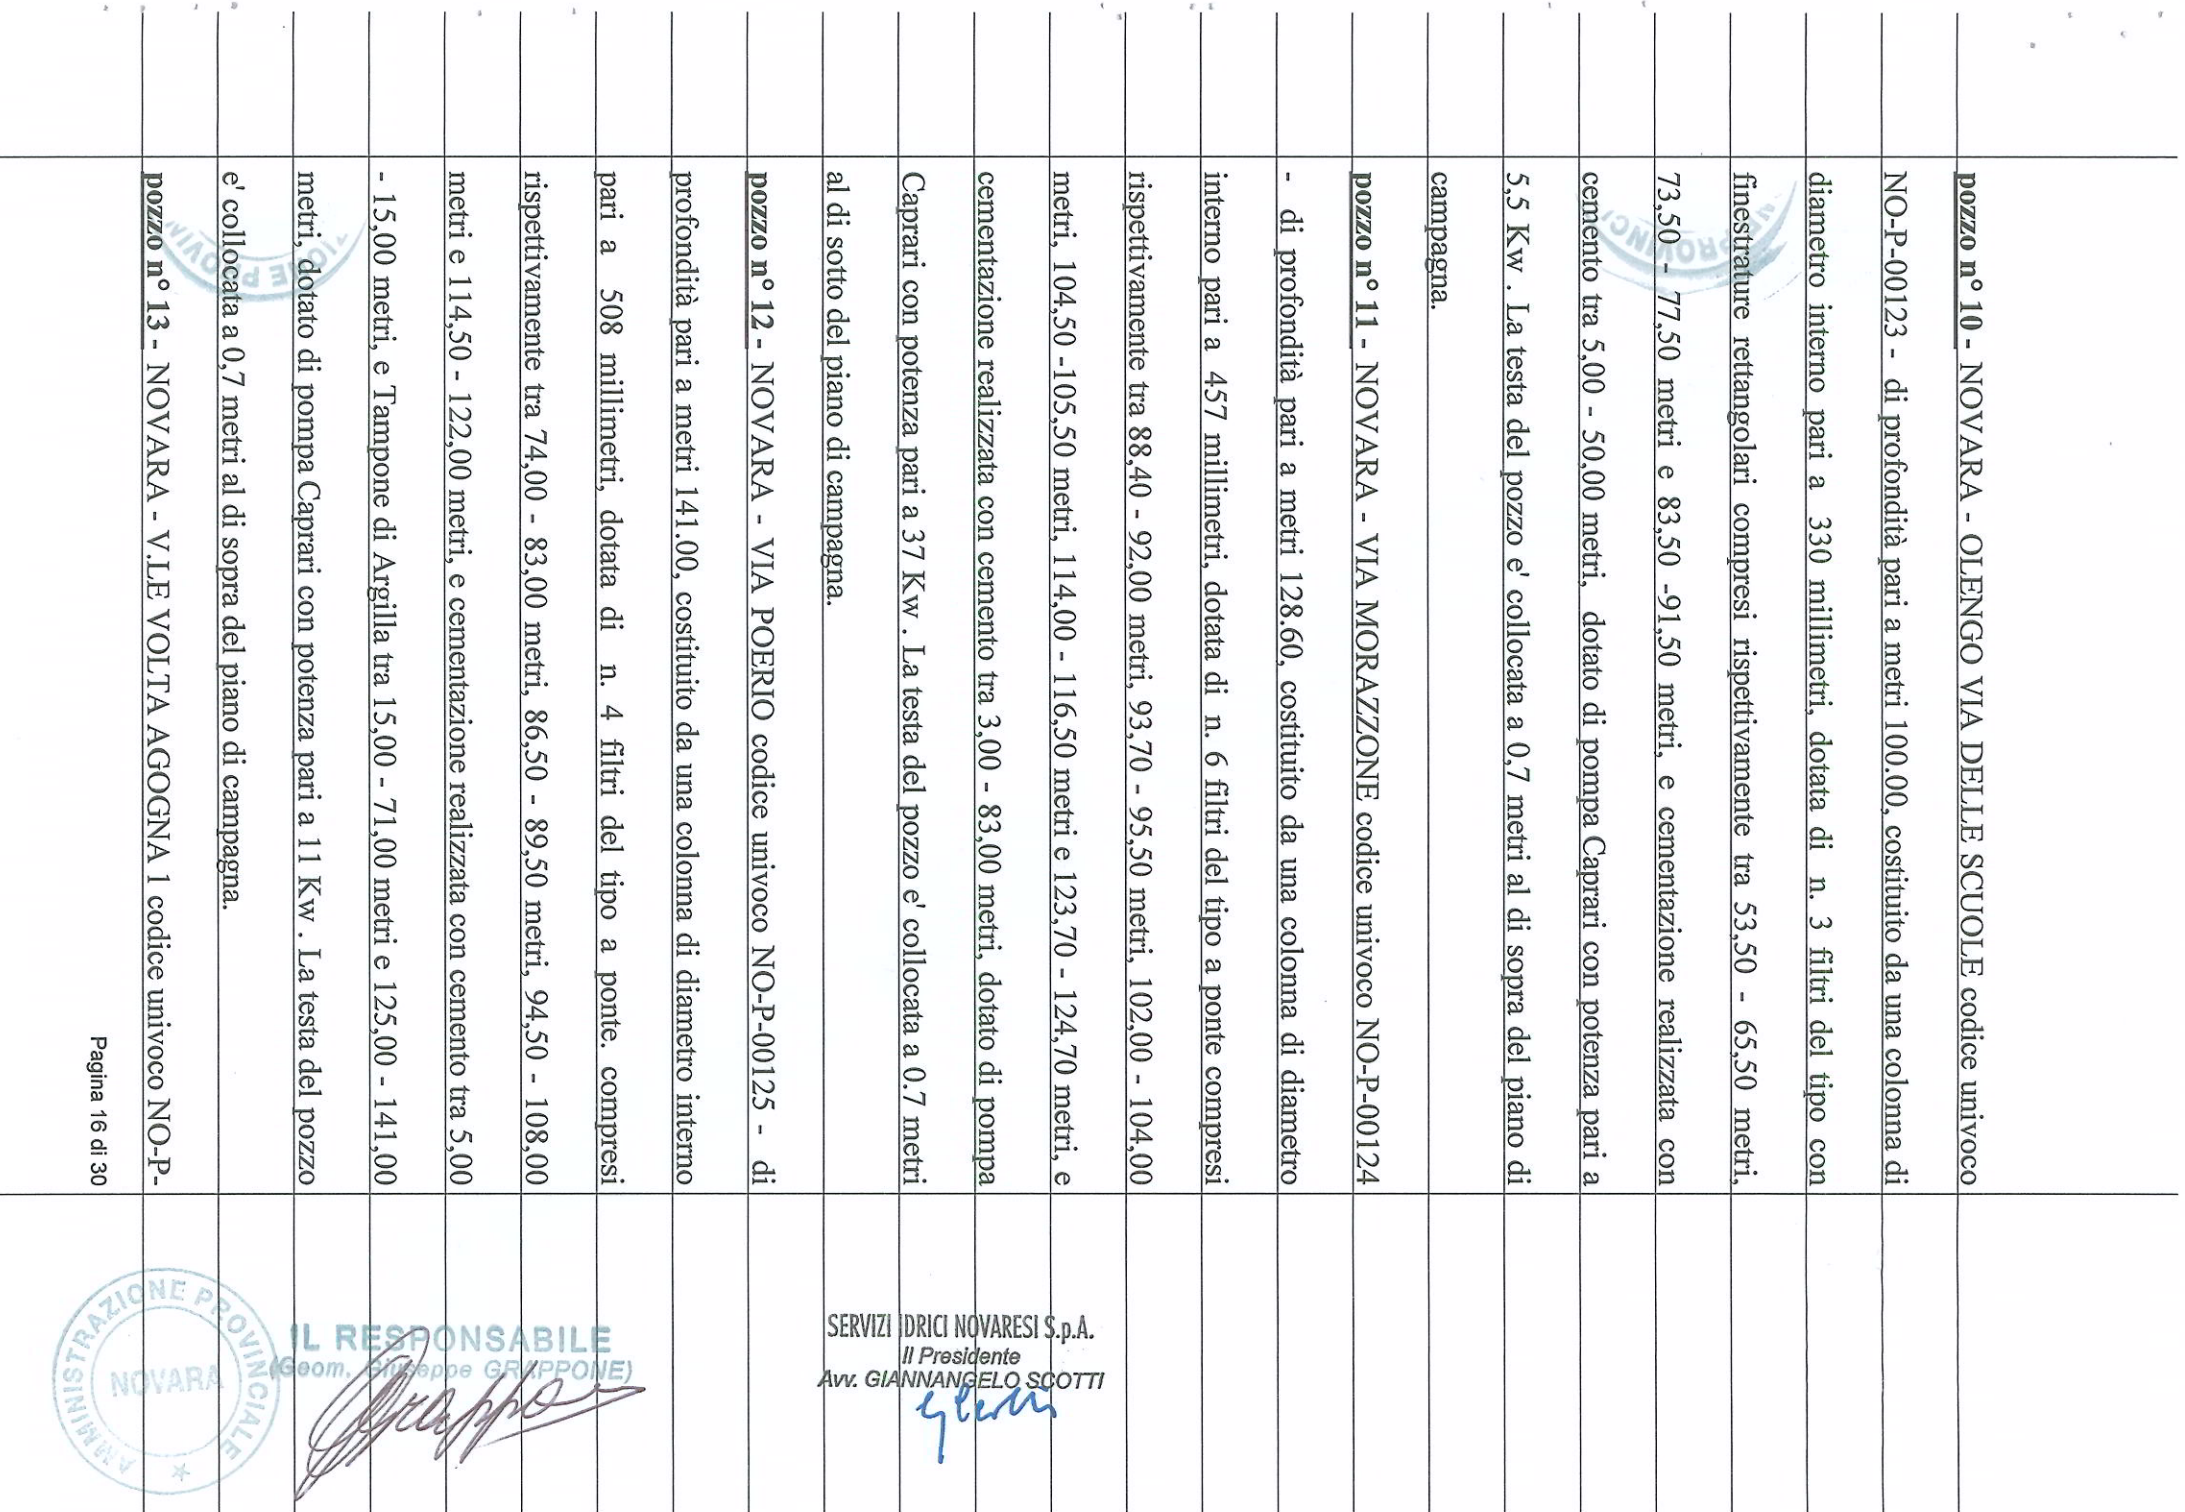 pozzo n° 10 - NOVARA - OLENGO VIA DELLE SCUOLE codice univoco
NO-P-00123 - di profondità pari a metri 100.00, costituito da una colonna di
diametro interno pari a 330 millimetri, dotata di n. 3 filtri del tipo con
finestrature rettangolari compresi rispettivamente tra 53,50 - 65,50 metri,
73,50 - 77,50 metri e 83,50 -91,50 metri, e cementazione realizzata con
cemento tra 5,00 - 50,00 metri, dotato di pompa Caprari con potenza pari a
5,5 Kw . La testa del pozzo e' collocata a 0,7 metri al di sopra del piano di
campagna.
pozzo n° 11 - NOVARA - VIA MORAZZONE codice univoco NO-P-00124
- di profondità pari a metri 128.60, costituito da una colonna di diametro
interno pari a 457 millimetri, dotata di n. 6 filtri del tipo a ponte compresi
rispettivamente tra 88,40 - 92,00 metri, 93,70 - 95,50 metri, 102,00 - 104,00
metri, 104,50 -105,50 metri, 114,00 - 116,50 metri e 123,70 - 124,70 metri, e
cementazione realizzata con cemento tra 3,00 - 83,00 metri, dotato di pompa
Caprari con potenza pari a 37 Kw . La testa del pozzo e' collocata a 0.7 metri
al di sotto del piano di campagna.
pozzo n° 12 - NOVARA - VIA POERIO codice univoco NO-P-00125 - di
profondità pari a metri 141.00, costituito da una colonna di diametro interno
pari a 508 millimetri, dotata di n. 4 filtri del tipo a ponte. compresi
rispettivamente tra 74,00 - 83,00 metri, 86,50 - 89,50 metri, 94,50 - 108,00
metri e 114,50 - 122,00 metri, e cementazione realizzata con cemento tra 5,00
- 15,00 metri, e Tampone di Argilla tra 15,00 - 71,00 metri e 125,00 - 141,00
metri, dotato di pompa Caprari con potenza pari a 11 Kw . La testa del pozzo
e' collocata a 0,7 metri al di sopra del piano di campagna.
pozzo n° 13 - NOVARA - V.LE VOLTA AGOGNA 1 codice univoco NO-P-
Pagina 16 di 30
SERVIZI IDRICI NOVARESI S.p.A.
Il Presidente
Avv. GIANNANGELO SCOTTI
IL RESPONSABILE
(Geom. Giuseppe GRAPPONE)
Grappone
AMMINISTRAZIONE PROVINCIALE
NOVARA